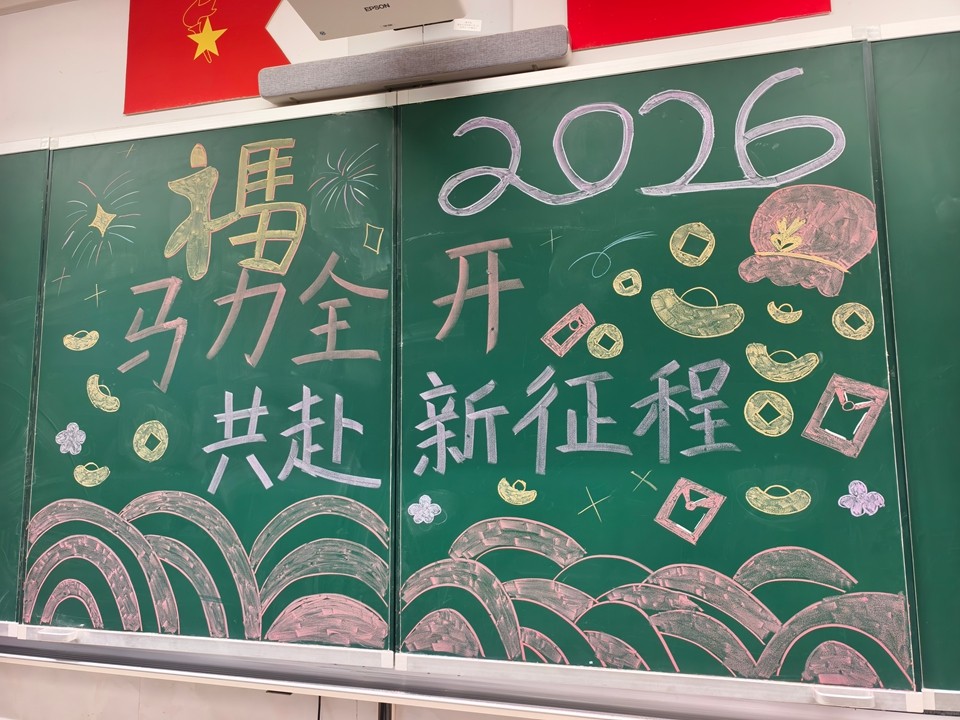 EPSON
2026
福
马力全开
共赴新征程